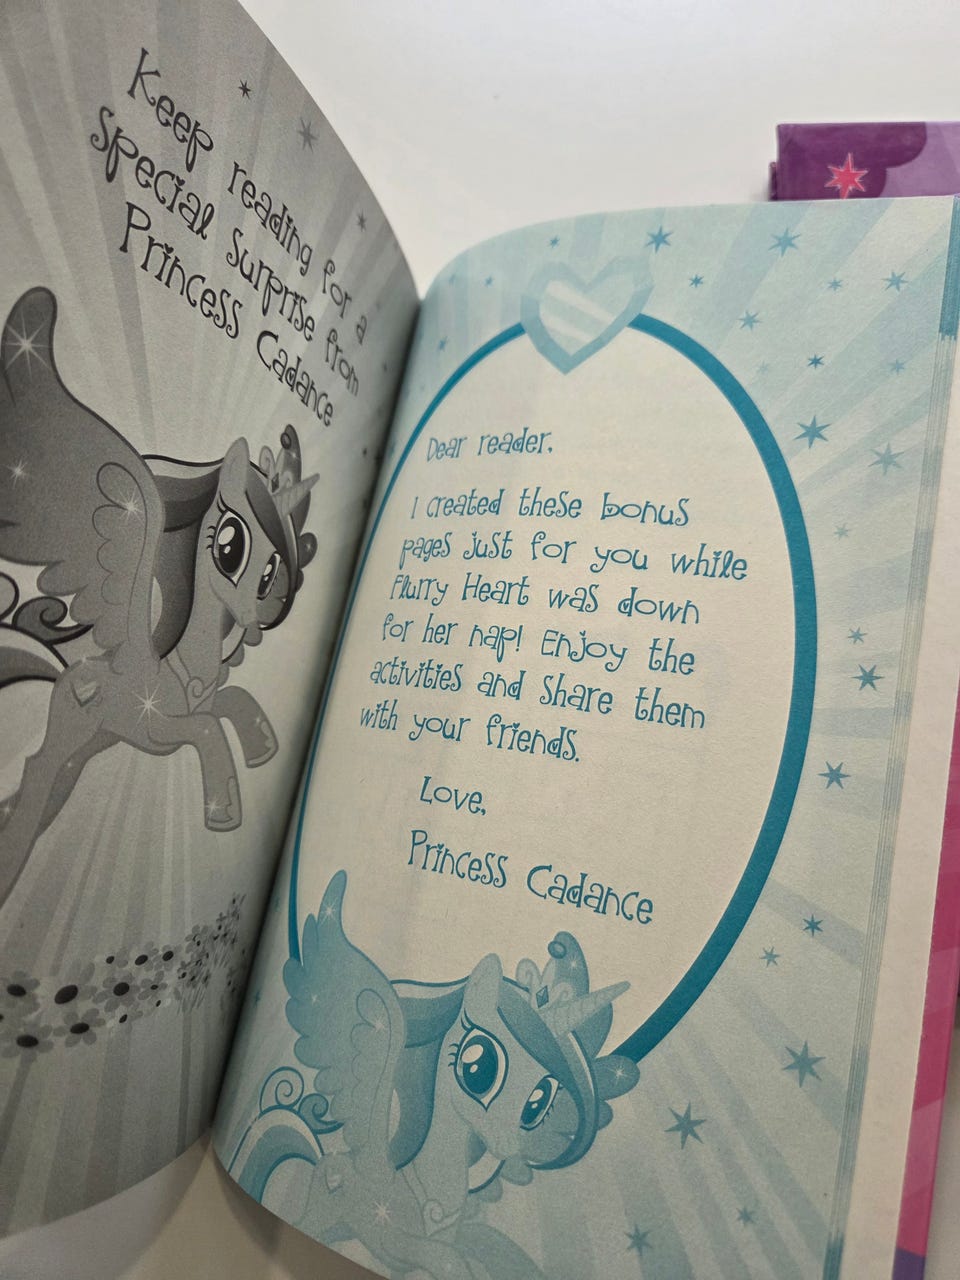 Keep reading for a
special surprise from
Princess Cadance
Dear reader,
I created these bonus
pages just for you while
Flurry Heart was down
for her nap! Enjoy the
activities and share them
with your friends.
Love,
Princess Cadance